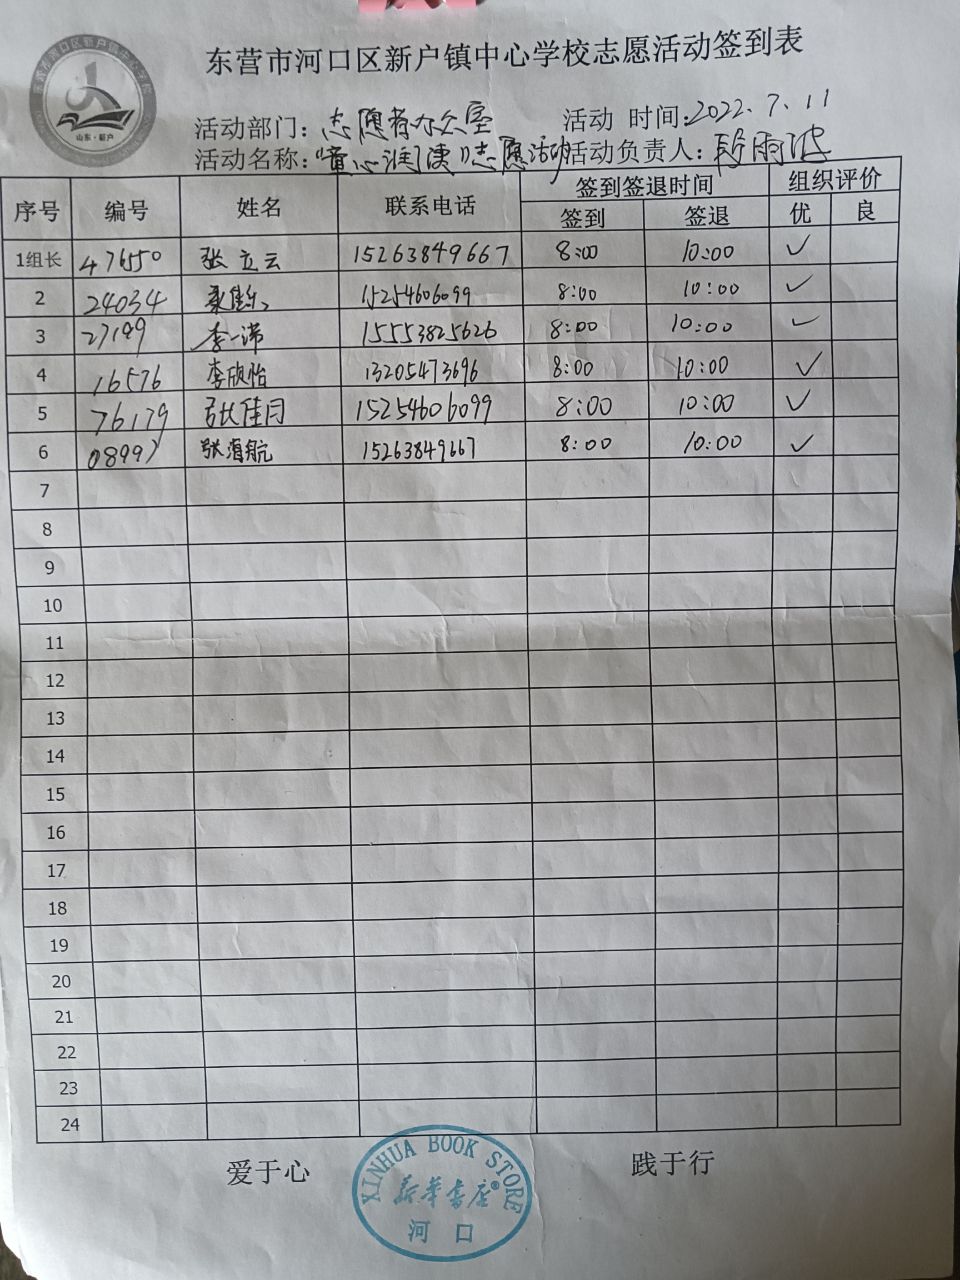 东营市河口区新户镇中心学校志愿活动签到表
山东·新户
活动部门：志愿者办公室 活动 时间：2022.7.11
活动名称：“童心润"志愿活动 活动负责人：段雨
序号 编号 姓名 联系电话 签到签退时间 组织评价
签到 签退 优 良
1组长 47650 张立云 15263849667 8:00 10:00 ✓
2 24034 15254606099 8:00 10:00 ✓
3 27199 李一诺 15553825626 8:00 10:00 ✓
4 16576 李欣怡 13205473696 8:00 10:00 ✓
5 76179 张佳闫 15254606099 8:00 10:00 ✓
6 08997 张海航 15263849667 8:00 10:00 ✓
7
8
9
10
11
12
13
14
15
16
17
18
19
20
21
22
23
24
爱于心 践于行
XINHUA BOOK STORE
新华书店®
河口